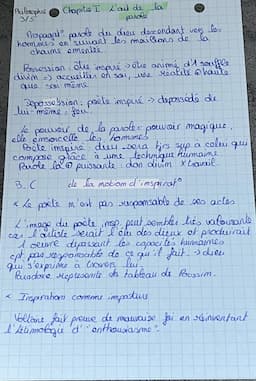 Philosophie Chapitre I L'art de la
3/5 parole
parole du dieu descendant vers les
hommes en suivant les maillons de la
chaîne aimantée.
Possession: être inspiré → être animé d'1 souffle
divin → accueillir en soi, une réalité + haute
que soi même
Dépossession: poète inspiré → dépossédé de
lui-même, fou.
Le pouvoir de la parole: pouvoir magique,
elle ensorcelle les hommes
Poète inspiré: dieu sera tjrs sup à celui qui
compose grâce à une technique humaine
Parole la + puissante: don divin, x travail.
3. C de la notion d'"inspirat°"
< Le poète n'est pas responsable de ses actes
L'image du poète insp. peut sembler très valorisante
car l'artiste serait l'élu des dieux et produirait
1 oeuvre dépassant les capacités humaines
cpt, pas responsable de ce qu'il fait → dieu
qui s'exprime à travers lui.
représente tableau de Poussin.
< Inspiration comme imposture
Voltaire fait preuve de mauvaise foi en réinventant
l'étimologie d'"enthousiasme".